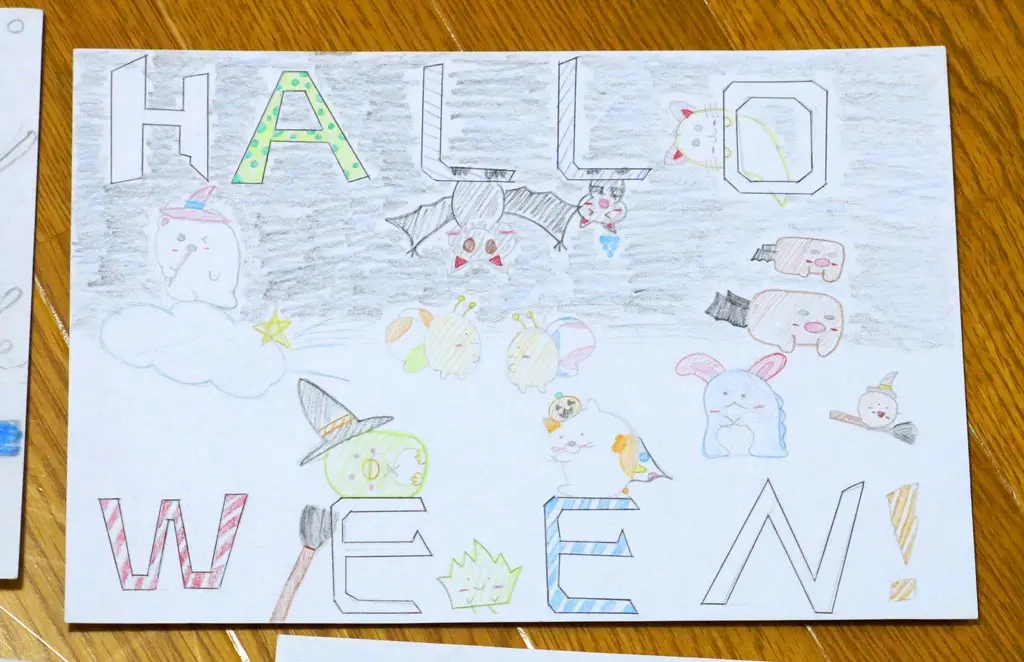 HALLO
WEEN!